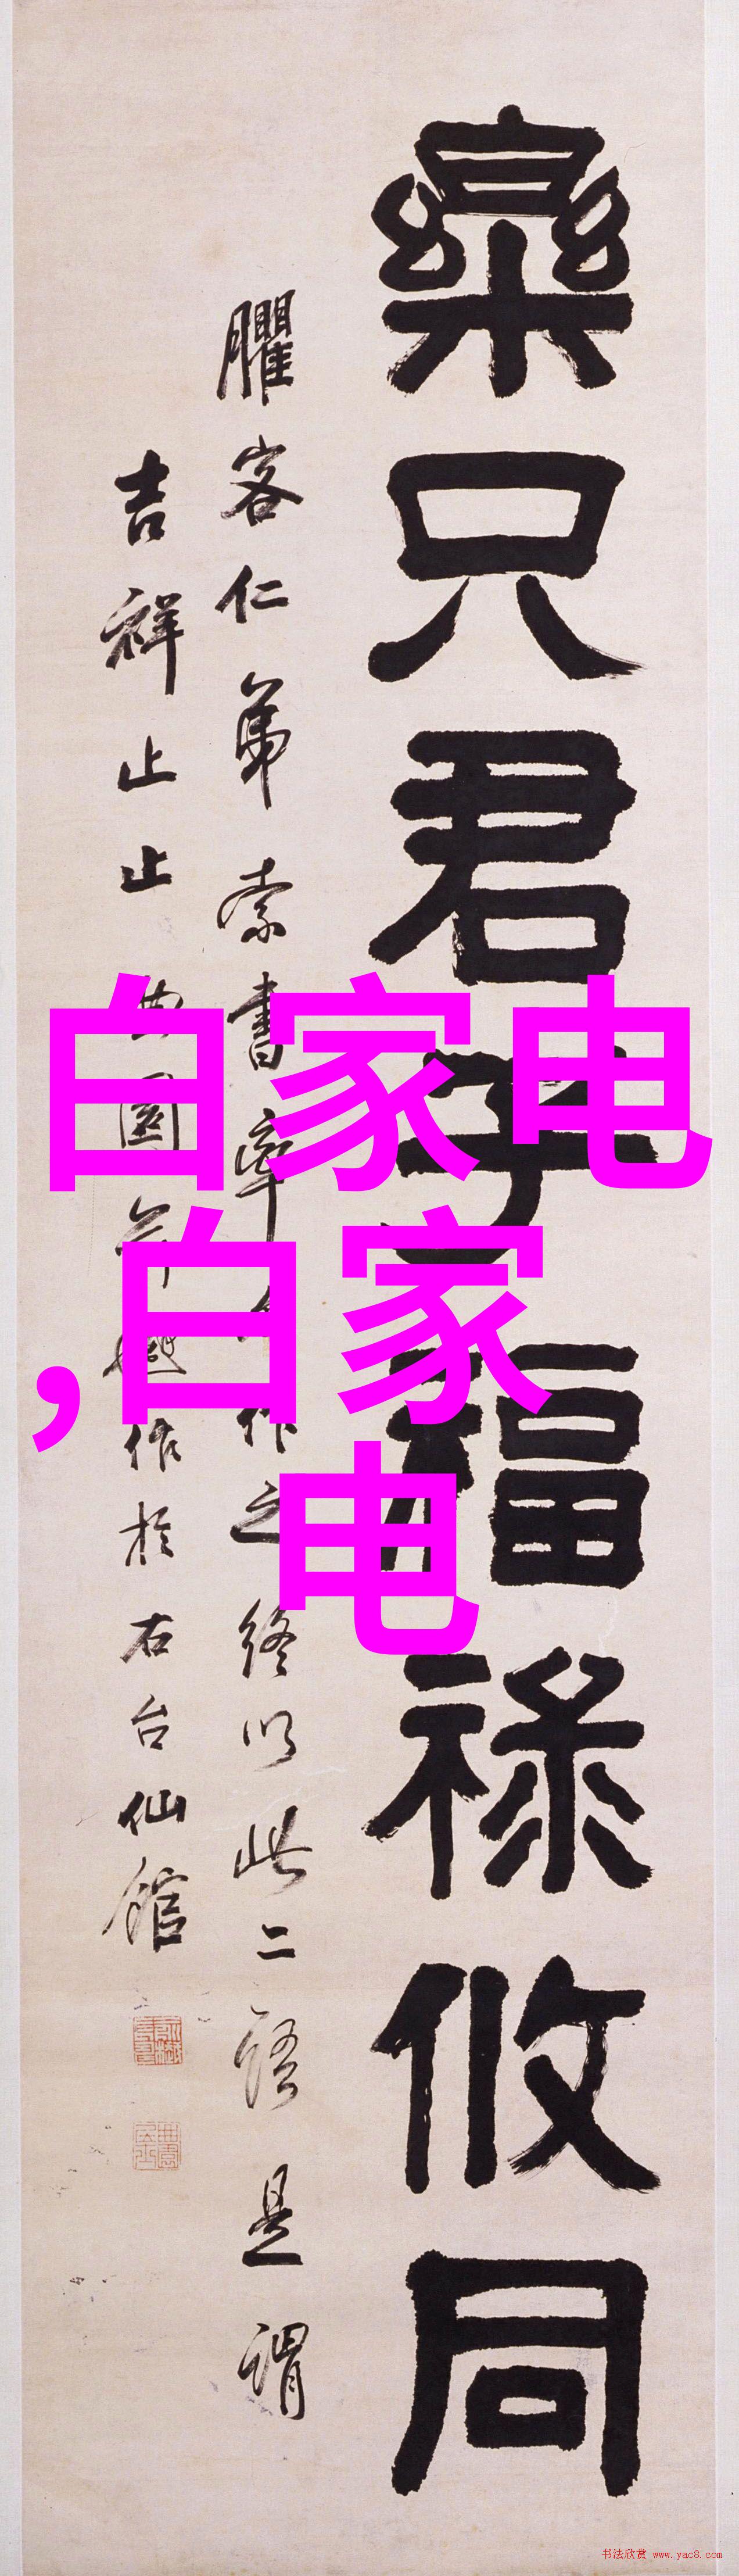 樂只君子福祿攸同
臞客仁弟索書率作之終以此二語是謂
吉祥止止曲園俞樾作於右台仙館
白家电
,白家
电
书法欣赏 www.yac8.com